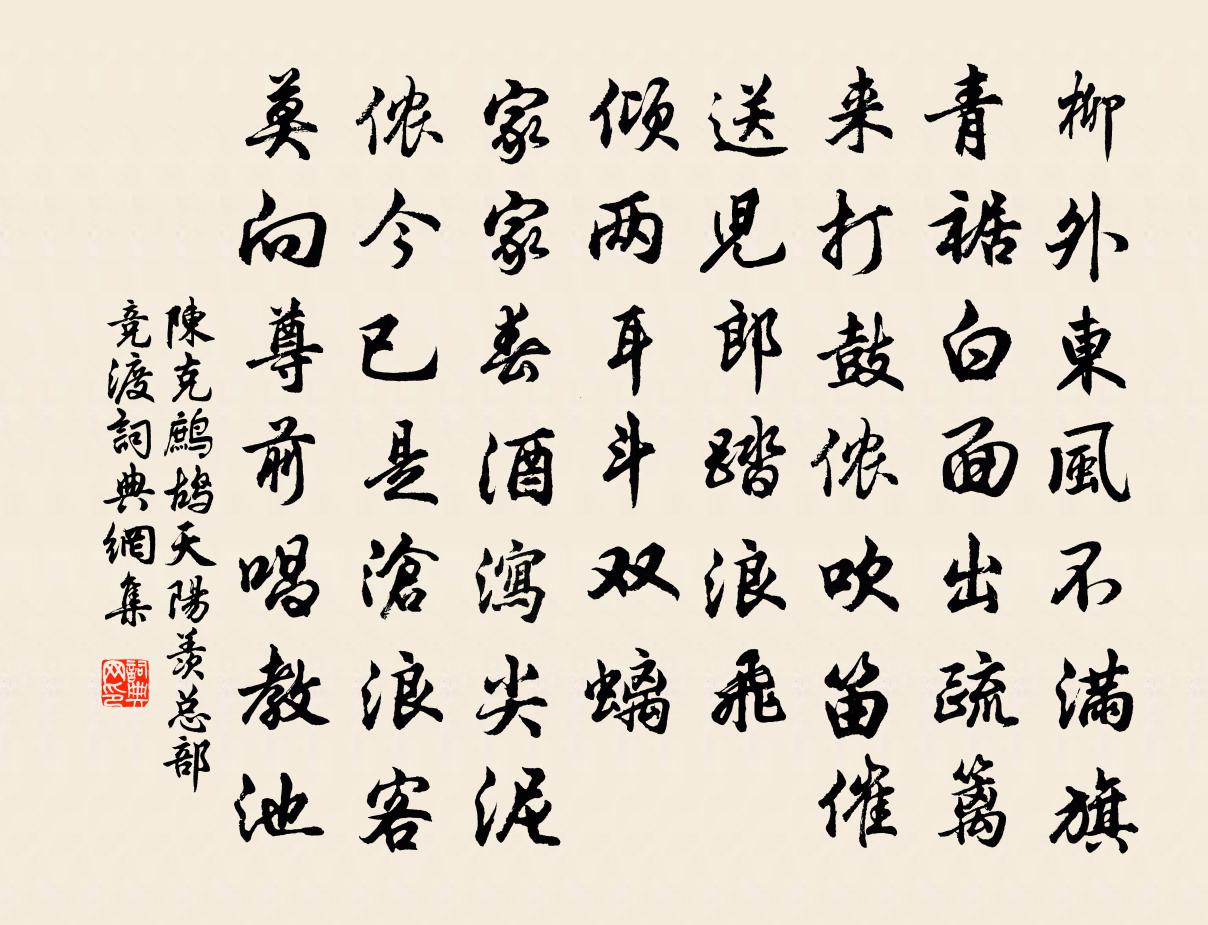 柳外東風不满旗
青裾白面出疏篱
来打鼓侬吹笛催
送児郎踏浪飛
倾两耳斗双螭
家家春酒瀉尖泥
侬今已是滄浪客
莫向尊前唱教池
陳克鷓鸪天陽羡总部
竞渡詞典網集
詞典网印